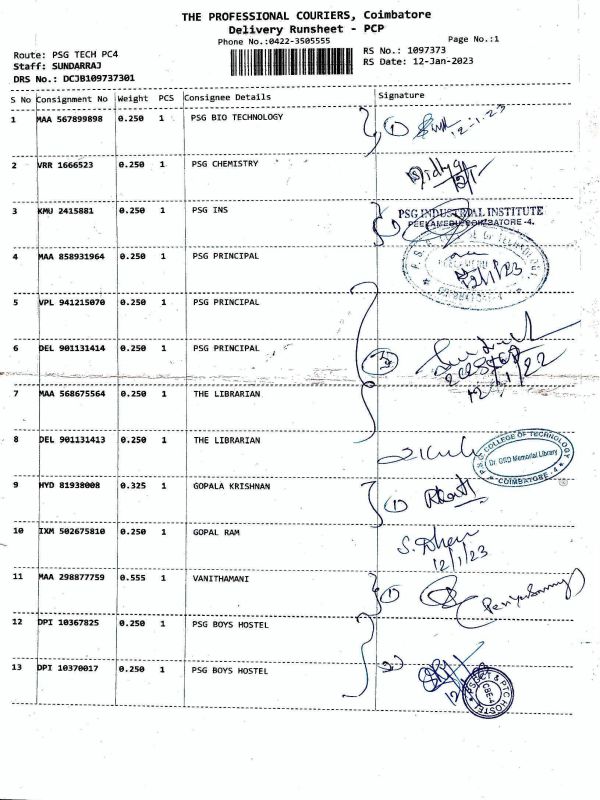 THE PROFESSIONAL COURIERS, Coimbatore
Delivery Runsheet - PCP
Phone No.:0422-3505555
Page No.:1
Route: PSG TECH PC4
RS No.: 1097373
Staff: SUNDARRAJ
RS Date: 12-Jan-2023
DRS No.: DCJB109737301
S No Consignment No Weight PCS Consignee Details Signature
1 MAA 567899898 0.250 1 PSG BIO TECHNOLOGY 1 12-1-23
2 VRR 1666523 0.250 1 PSG CHEMISTRY Vidhya 12/1
3 KMU 2415881 0.250 1 PSG INS 1 PSG INDUSTRIAL INSTITUTE
PEELAMEDU COIMBATORE -4.
4 MAA 858931964 0.250 1 PSG PRINCIPAL P.S.G. COLLEGE OF TECHNOLOGY
12/1/23
COIMBATORE
5 VPL 941215070 0.250 1 PSG PRINCIPAL
6 DEL 901131414 0.250 1 PSG PRINCIPAL
12/1/22
7 MAA 568675564 0.250 1 THE LIBRARIAN
8 DEL 901131413 0.250 1 THE LIBRARIAN P.S.G. COLLEGE OF TECHNOLOGY
Dr. GRD Memorial Library
COIMBATORE - 4
9 HYD 81938008 0.325 1 GOPALA KRISHNAN 1
10 IXM 502675810 0.250 1 GOPAL RAM S. Dhan
12/1/23
11 MAA 298877759 0.555 1 VANITHAMANI 1 (Periyasamy)
12 DPI 10367825 0.250 1 PSG BOYS HOSTEL
13 DPI 10370017 0.250 1 PSG BOYS HOSTEL 2 PSGCT & PTC HOSTEL
CBE-4